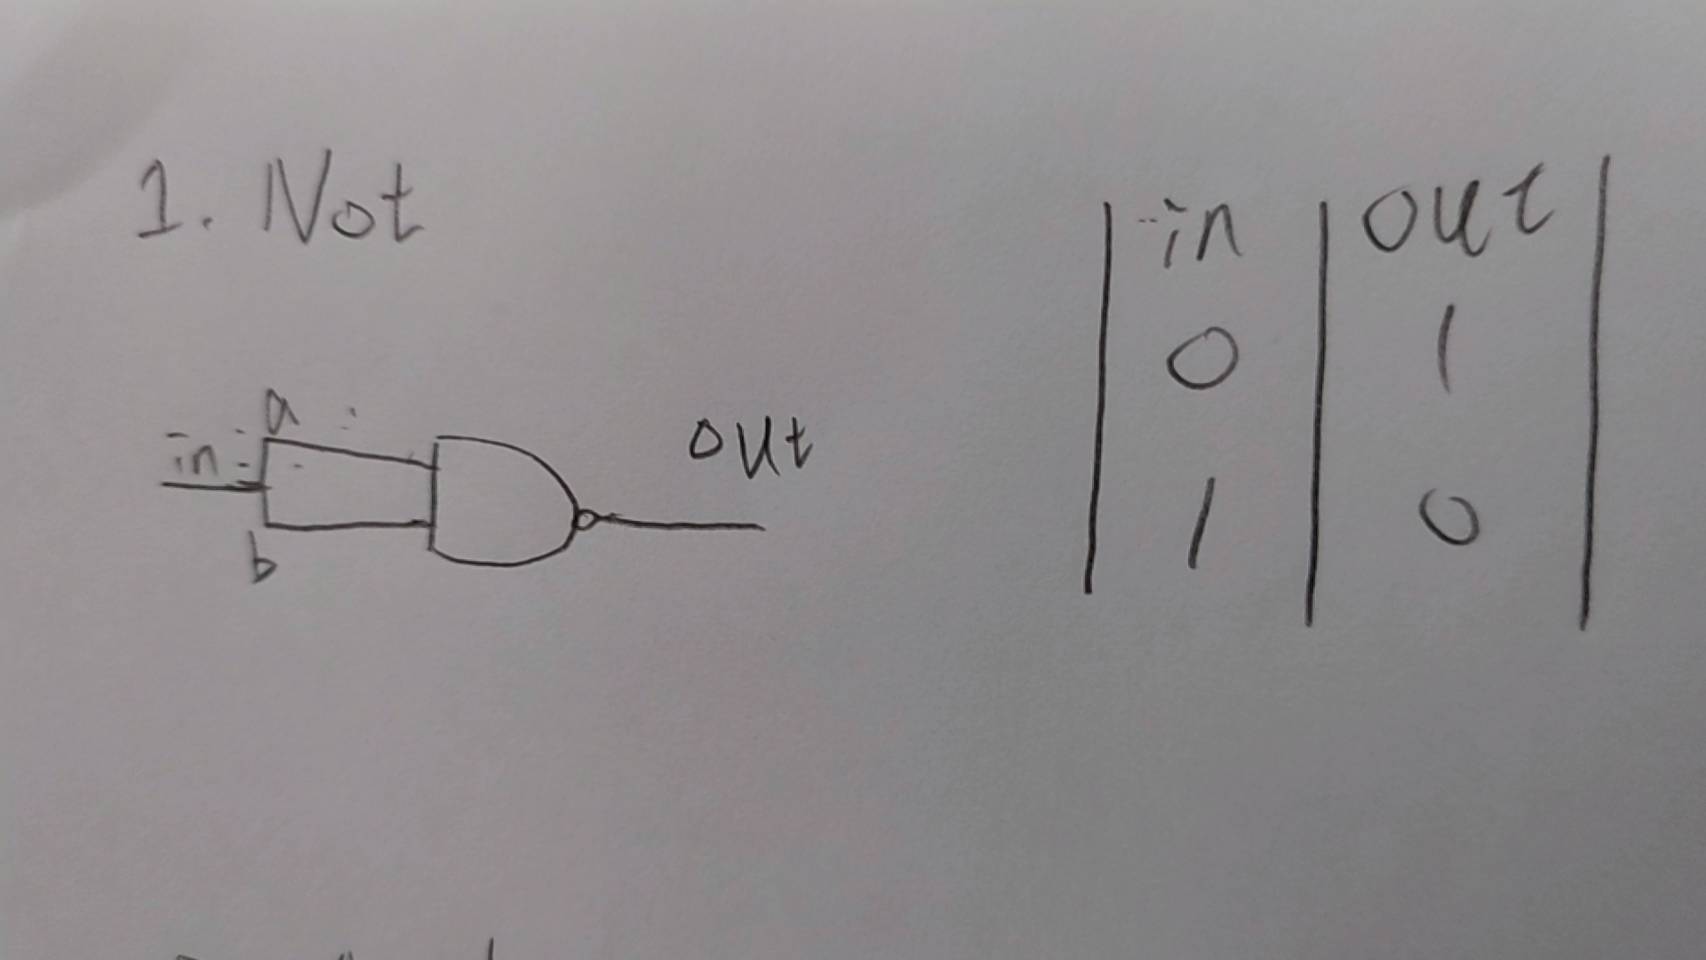 1. Not
in
a
b
out
in out
0 1
1 0